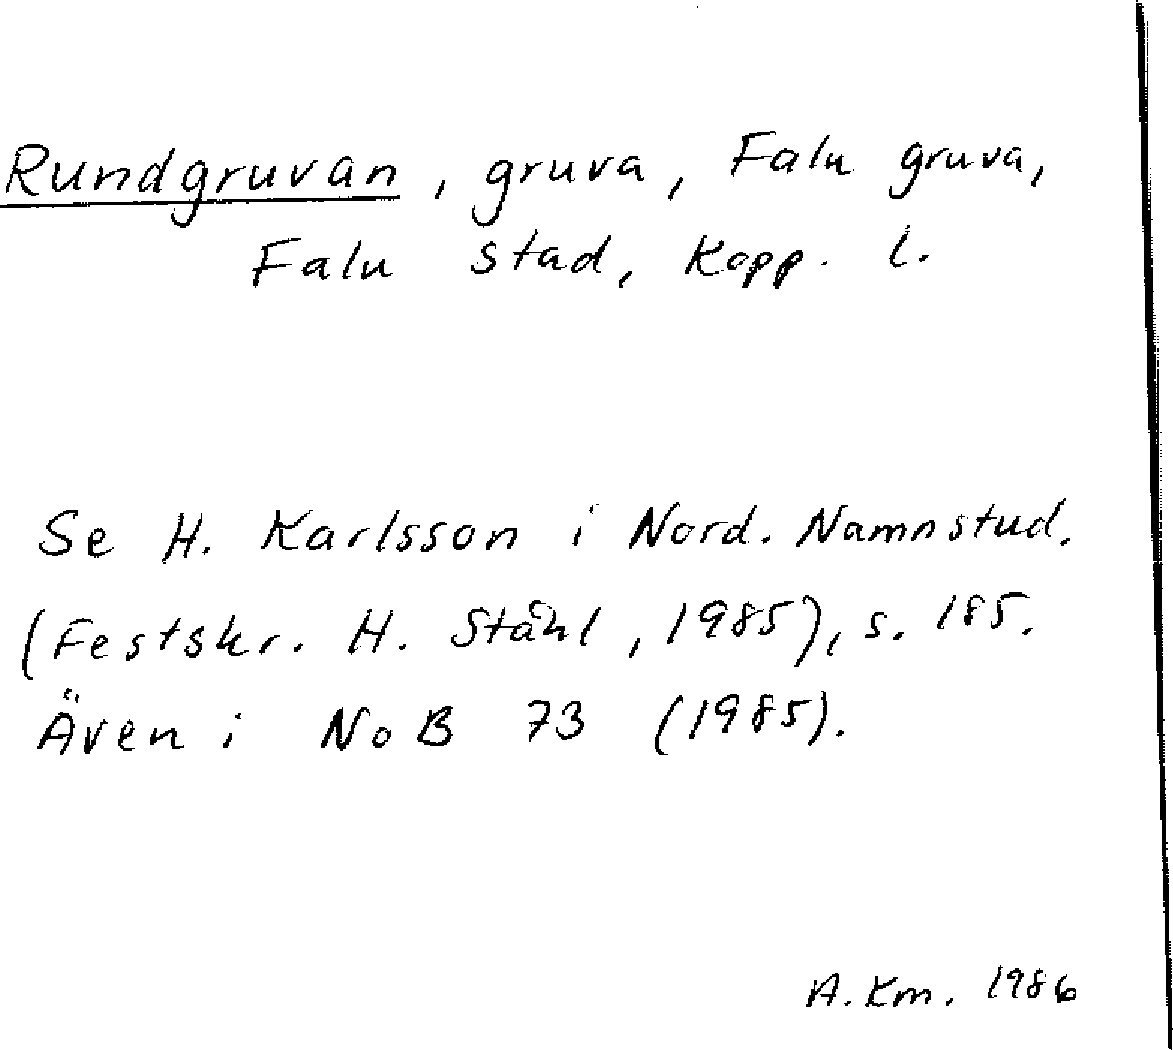 Rundgruvan, gruva, Falu gruva,
Falu stad, Kopp. l.
Se H. Karlsson i Nord. Namnstud.
(Festskr. H. Ståhl, 1985), s. 185.
Även i NoB 73 (1985).
A. Km. 1986